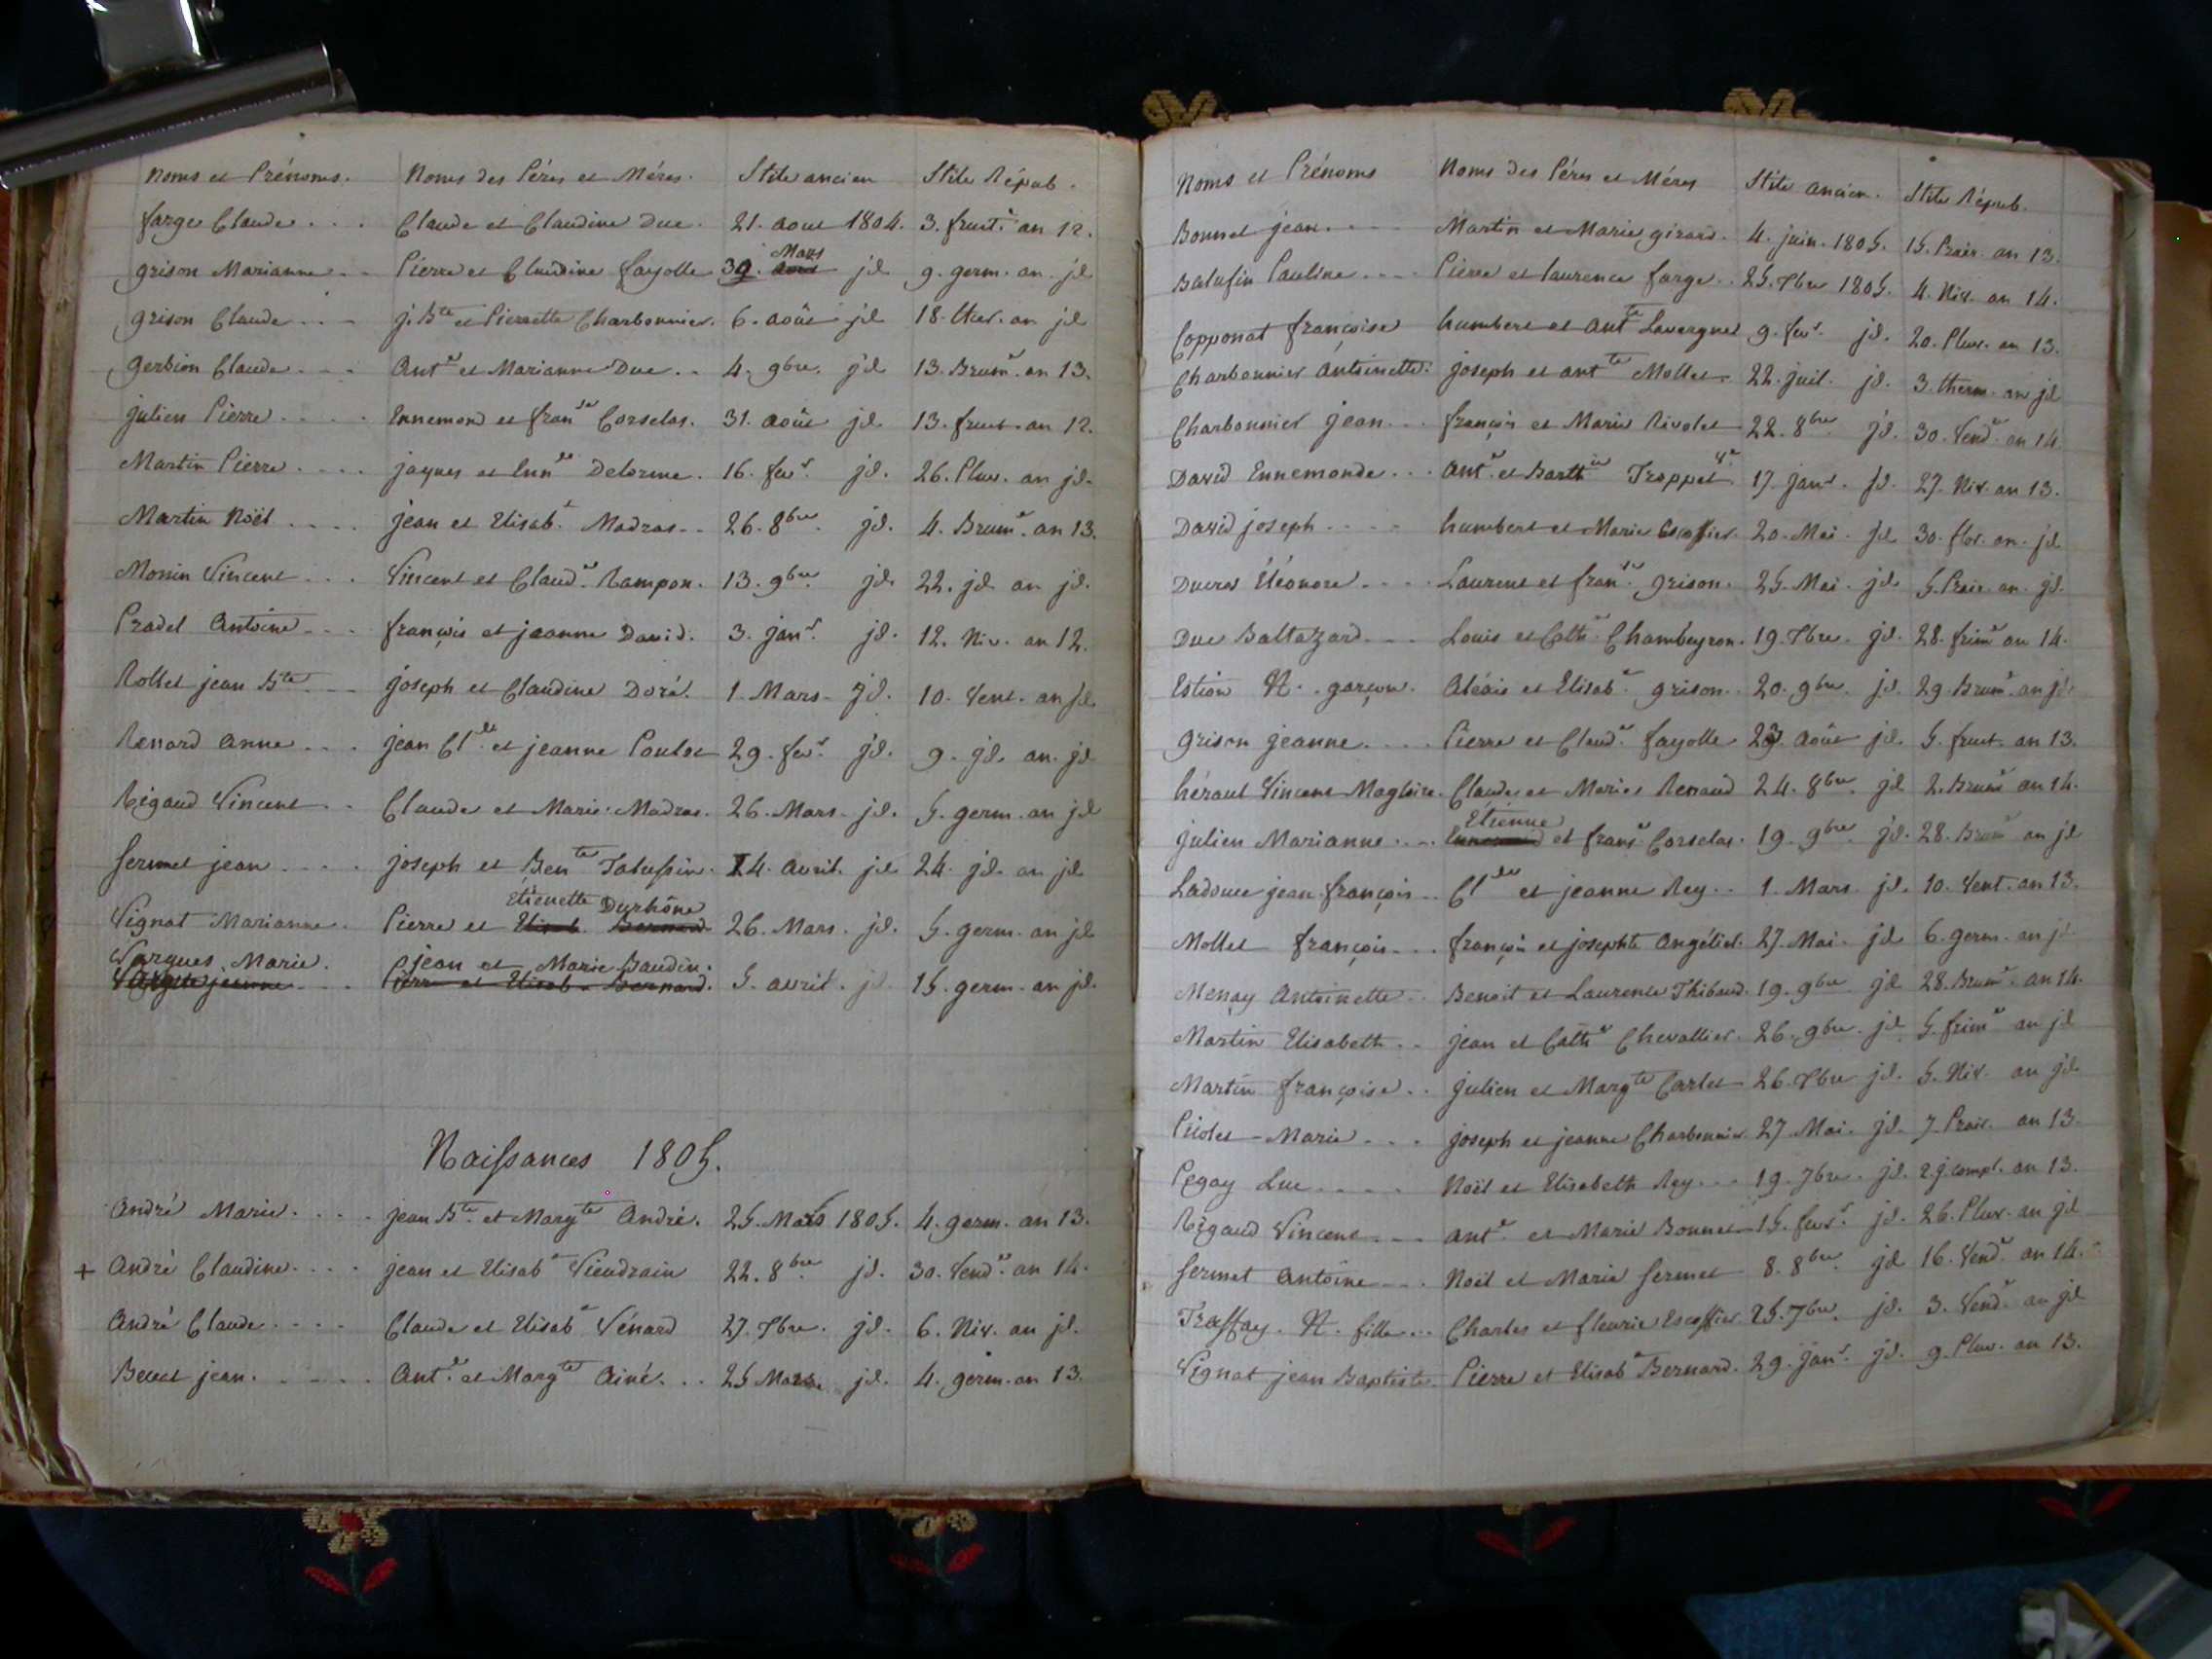 Noms et Prénoms. Noms des Péres et Méres. Stile ancien Stile Répub.
farge Claude . . . Claude et Claudine Duc. 21. aout 1804. 3. fruct.r an 12.
Mars
grison Marianne . . Pierre et Claudine fayolle 30. jd 9. germ. an. jd
grison Claude . . . j. Bte et Pierrette Charbonnier. 6. août jd 18. ther. an jd
gerbion Claude . . . Ant.e et Marianne Duc . . 4. 9bre. jd 13. Brum.e an 13.
julien Pierre . . . . Ennemond et franse Corselas. 31. août jd. 13. fruct. an 12.
Martin Pierre . . . . jaques et Enn.de Delorme. 16. fev.r jd. 26. Pluv. an jd.
Martin Noël . . . . jean et Elisab.t Madras . . 26. 8bre. jd. 4. Brum.e an 13.
Monin Vincent . . . Vincent et Claud.e Rampon. 13. 9bre. jd. 22. jd. an jd.
Pradel Antoine . . . françois et jeanne David. 3. jan.r jd. 12. Niv. an 12.
Rollet jean Bte . . . joseph et Claudine Doré. 1. Mars. jd. 10. Vent. an jd.
Renard Anne . . . jean Cl.de et jeanne Poulet 29. fev.r jd. 9. jd. an. jd
Rigaud Vincent . . Claude et Marie Madras. 26. Mars. jd. 5. germ. an jd
Sermet jean . . . . joseph et Ben.te Talussin. 14. avril. jd 24. jd. an jd
Etienette Durhône
Vignat Marianne. Pierre et Elisab. Bernard 26. Mars. jd. 5. germ. an jd
Vargues Marie. jean et Marie Baudin.
jeanne . . . Pierre et Elisab. Bernard. 5. avril. jd 15. germ. an jd.
Naissances 1805.
André Marie. . . . jean Bte. et Margte André. 25. Mars 1805. 4. germ. an 13.
+ André Claudine. . . . jean et Elisab.t Vieudrain 22. 8bre. jd. 30. Vend.e an 14.
André Claude . . . . Claude et Elisab.t Vénard 27. Xbre. jd. 6. Niv. an jd.
jean. . . . . Ant.e et Margte Ainé. . . 25 Mars. jd. 4. germ. an 13.
Noms et Prénoms Noms des Péres et Méres Stile ancien. Stile Répub.
Bonnet jean. . . . . Martin et Marie girard. 4. juin. 1805. 15. Prair. an 13.
Balufin Pauline . . . . Pierre et laurence farge . . 25. Xbre 1805. 4. Niv. an 14.
Copponat françoise humbert et ant.te Lavergne 9. fev.r jd. 20. Pluv. an 13.
Charbonnier Antoinette. joseph et ant.te Mollet 22. juil. jd. 3. therm. an jd
Charbonnier jean . . . françois et Marie Rivolet 22. 8bre jd. 30. Vend.e an 14.
David Ennemonde . . . Ant.e et Barth.ie Troppel 17. jan.r jd. 27. Niv. an 13.
David joseph . . . . humbert et Marie Escoffier. 20. Mai. jd 30. flor. an. jd
Ducros Eléonore . . . . Laurent et fran.se grison. 25. Mai. jd. 5. Prair. an. jd.
Duc Baltazard . . . Louis et Cath.e Chambeyron. 19. Xbre. jd. 28. frim.e an 14.
Estion N. garçon. Aléxis et Elisab.t grison. . 20. 9bre. jd. 29. Brum.e an jd.
grison jeanne. . . . . Pierre et Claud.e fayolle 23. août jd. 5. fruct. an 13.
héraut Vincent Magloire. Claude et Marie Renaud 24. 8bre. jd 2. Brum.e an 14.
Etienne
julien Marianne . . . Ennemond et frans.e Corselas. 19. 9bre jd. 28. Brum.e an jd
Ladouce jean françois . . Cl.de et jeanne Rey . . 1. Mars jd. 10. Vent. an 13.
Mollet françois . . . françois et josephte Angélier. 27. Mai. jd 6. germ. an jd
Menay Antoinette . . Benoit et Laurence Thibaud. 19. 9bre. jd 28. Brum.e an 14.
Martin Elisabeth . . jean et Cath.e Chevallier. 26. 9bre. jd 5. frim.e an jd
Martin françoise . . julien et Margte Carlet 26. Xbre jd. 5. Niv. an jd
Marie . . . . joseph et jeanne Charbonnier 27. Mai. jd. 7. Prair. an 13.
Pegay Luc . . . . . Noël et Elisabeth Rey . . . 19. 7bre. jd. 2 j. compl. an 13.
Rigaud Vincent . . . ant.e et Marie Bonnet 15. fevr.r jd. 26. Pluv. an jd
Sermet Antoine . . . Noël et Marie Sermet 8. 8bre. jd 16. Vend.e an 14.
Traffay. N. fille . . . Charles et fleurie Escoffier 25. 7bre. jd. 3. Vend.e an jd
Vignat jean Baptiste. Pierre et Elisab.t Bernard. 29. jan.r jd. 9. Pluv. an 13.